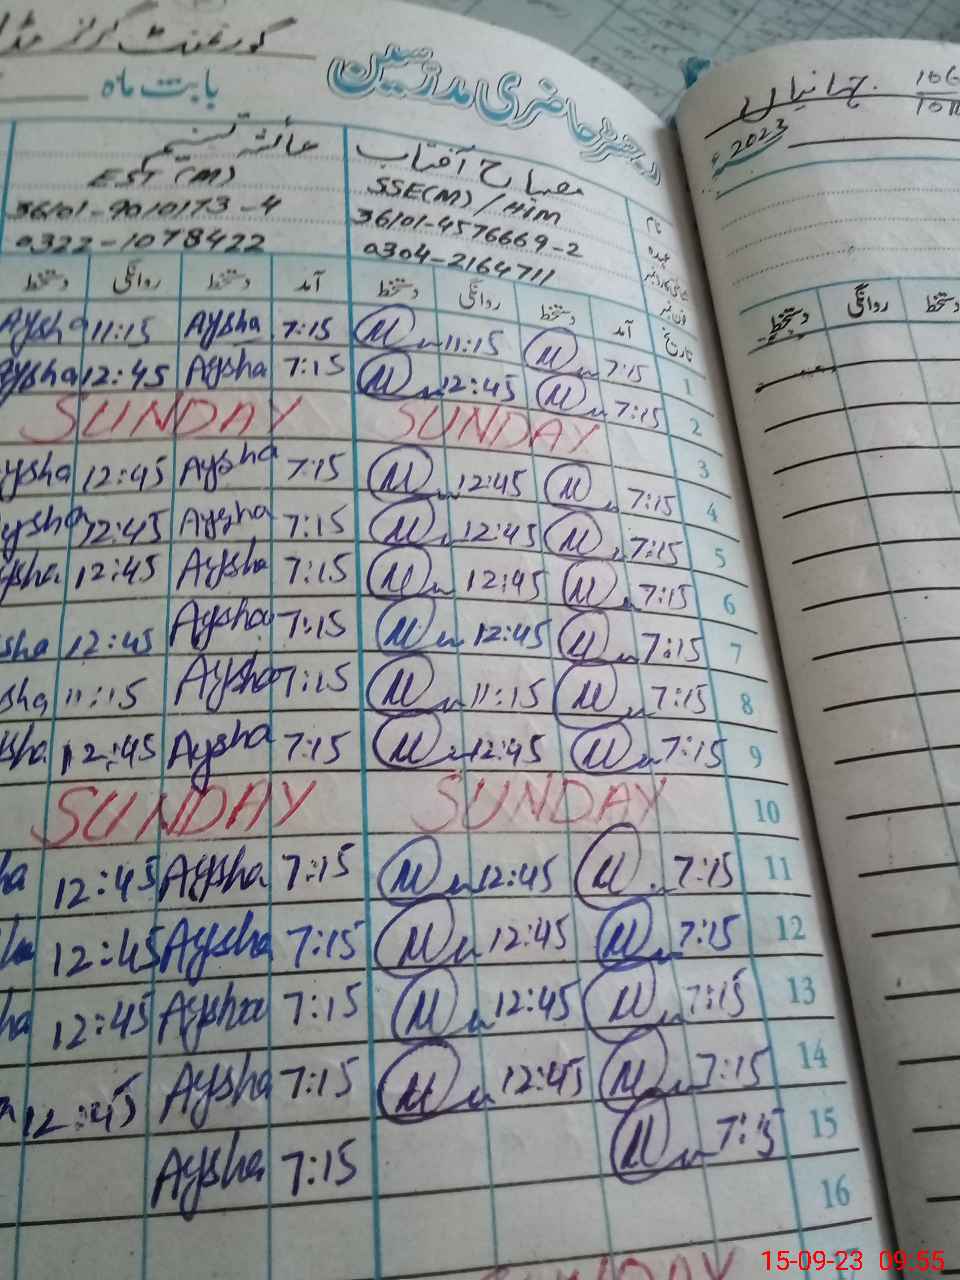 گورنمنٹ گرلز
رجسٹر حاضری مدرسین
بابت ماہ
جہانیاں
2023
مصباح آفتاب
SSE(M)/HIM
36101-4576669-2
0304-2164711
عائشہ تسنیم
EST (M)
36101-9010173-4
0322-1078422
نام
عہدہ
فون نمبر
تاریخ
آمد دستخط روانگی دستخط آمد دستخط روانگی دستخط
دستخط روانگی دستخط
1 7:15 11:15 7:15 Aysha 11:15 Aysha
2 7:15 12:45 7:15 Aysha 12:45 Aysha
3 SUNDAY SUNDAY
4 7:15 12:45 7:15 Aysha 12:45 Aysha
5 7:15 12:45 7:15 Aysha 12:45 Aysha
6 7:15 12:45 7:15 Aysha 12:45 ysha
7 7:15 12:45 7:15 Aysha 12:45 sha
8 7:15 11:15 7:15 Aysha 11:15 sha
9 7:15 12:45 7:15 Aysha 12:45 sha
10 SUNDAY SUNDAY
11 7:15 12:45 7:15 Aysha 12:45 ha
12 7:15 12:45 7:15 Aysha 12:45 ha
13 7:15 12:45 7:15 Aysha 12:45 ha
14 7:15 12:45 7:15 Aysha 12:45
15 7:15 7:15 Aysha
16
SUNDAY
15-09-23 09:55